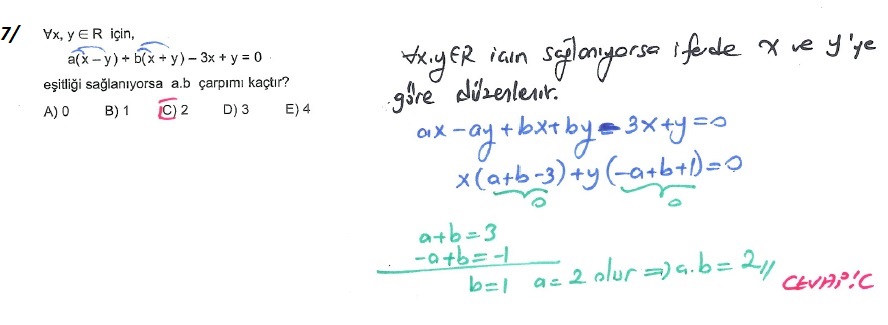 7/ ∀x, y ∈ R için,
a(x – y) + b(x + y) – 3x + y = 0
eşitliği sağlanıyorsa a.b çarpımı kaçtır?
A) 0 B) 1 C) 2 D) 3 E) 4
∀x,y∈R için sağlanıyorsa ifade x ve y'ye
göre düzenlenir.
ax - ay + bx + by - 3x + y = 0
x(a+b-3) + y(-a+b+1) = 0
0 0
a+b = 3
-a+b = -1
b=1 a=2 olur ⇒ a.b = 2//
CEVAP: C